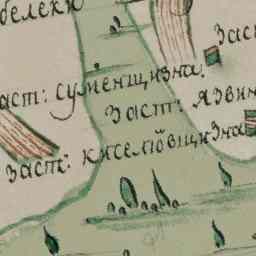 белеки
заст
аст: суменщизна.
заст: язвин
заст: киселювщизна